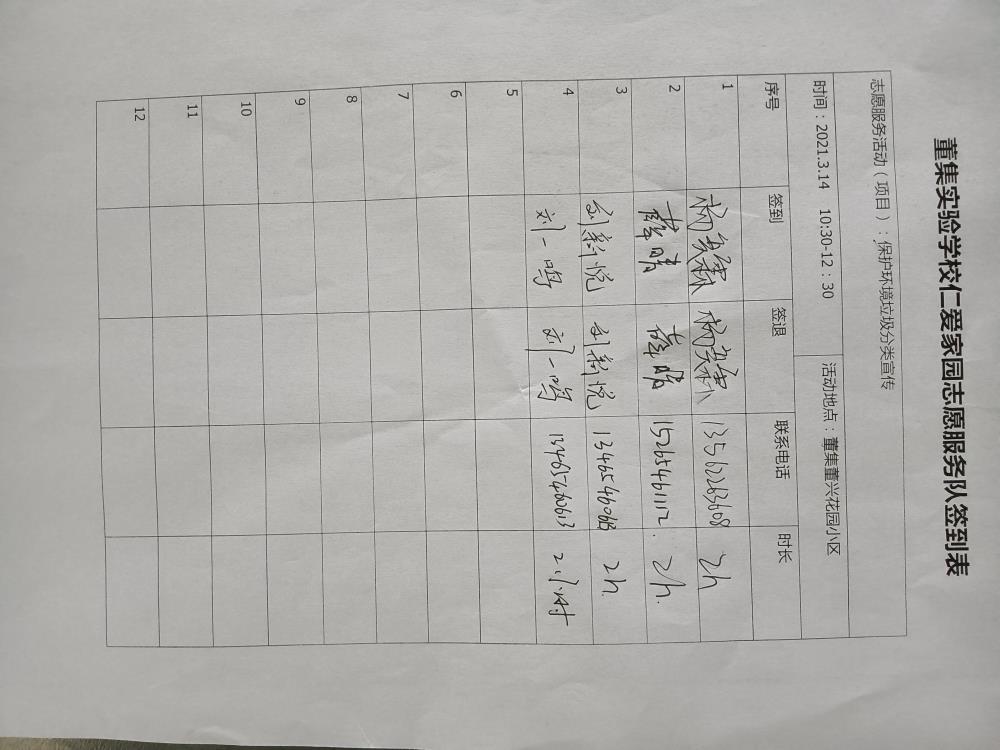 董集实验学校仁爱家园志愿服务队签到表
志愿服务活动（项目）：保护环境垃圾分类宣传
时间：2021.3.14 10:30-12：30 活动地点：董集董兴花园小区
序号 签到 签退 联系电话 时长
1 13562263608 2h
2 薛晴 薛晴 15265461112. 2h.
3 刘新悦 刘新悦 13465460613 2h.
4 刘一鸣 刘一鸣 13465460613 2小时
5
6
7
8
9
10
11
12